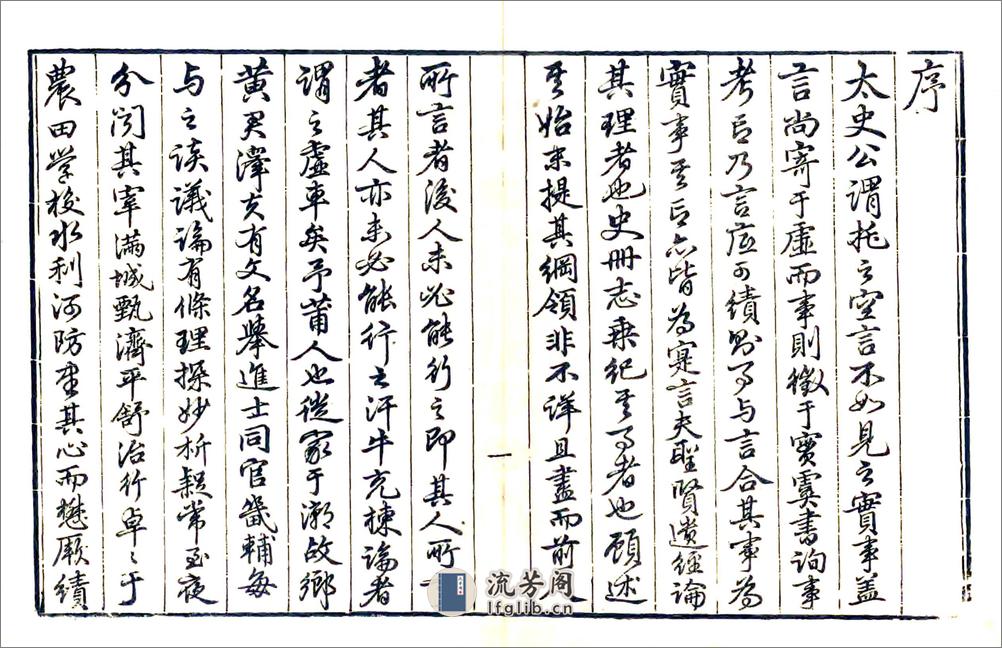 序
太史公謂托之空言不如見之實事盖
言尚寄于虛而事則徵于實虞書詢事
考言乃言底可績則事与言合其事為
實事其言亦皆為寔言夫聖賢遺經論
其理者也史冊志乘紀其事者也顧述
其始末提其綱領非不詳且盡而前人
一
所言者後人未必能行之即其人所
者其人亦未必能行之汗牛充棟論者
謂之虛車矣予莆人也從家于潮故鄉
黄君澤夫有文名舉進士同官畿輔每
与之談議論有條理探妙析疑常至夜
分閱其宰滿城甄濟平舒治行卓〻于
農田學校水利河防重其心而懋厥績
流芳阁
lfglib.cn